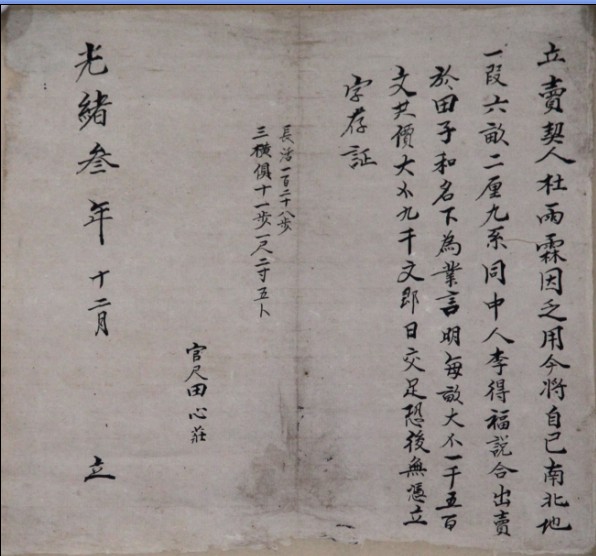 立賣契人杜雨霖因乏用今將自已南北地
一段六畝二厘九系同中人李得福説合出賣
於田子和名下為業言明每畝大小一千五百
文共價大小九千文即日交足恐後無憑立
字存証
長活一百二十八步
三橫俱十一步一尺二寸五卜
官尺田心莊
光緒叁年十二月 立